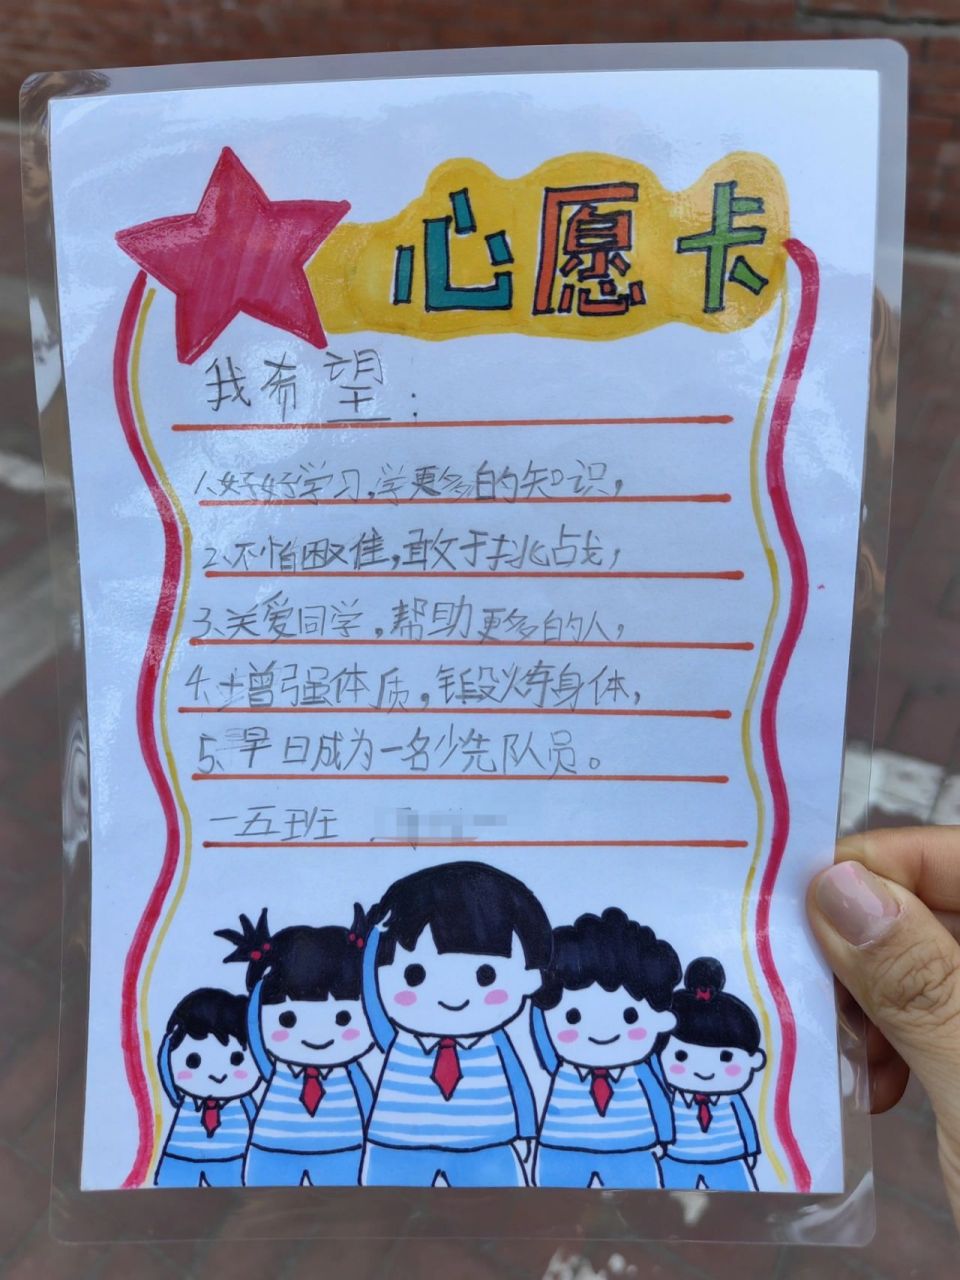 心愿卡
我希望:
1、好好学习,学更多的知识,
2、不怕困难,敢于挑战,
3、关爱同学,帮助更多的人,
4、增强体质,锻炼身体,
5、早日成为一名少先队员。
一五班